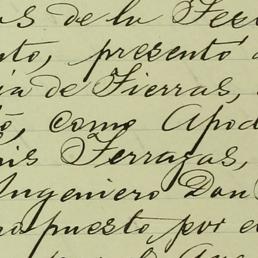 os de la Secr
nto, presentó
ia de Tierras,
como Apod
uis Terrazas,
Ingeniero Don
puesto por e